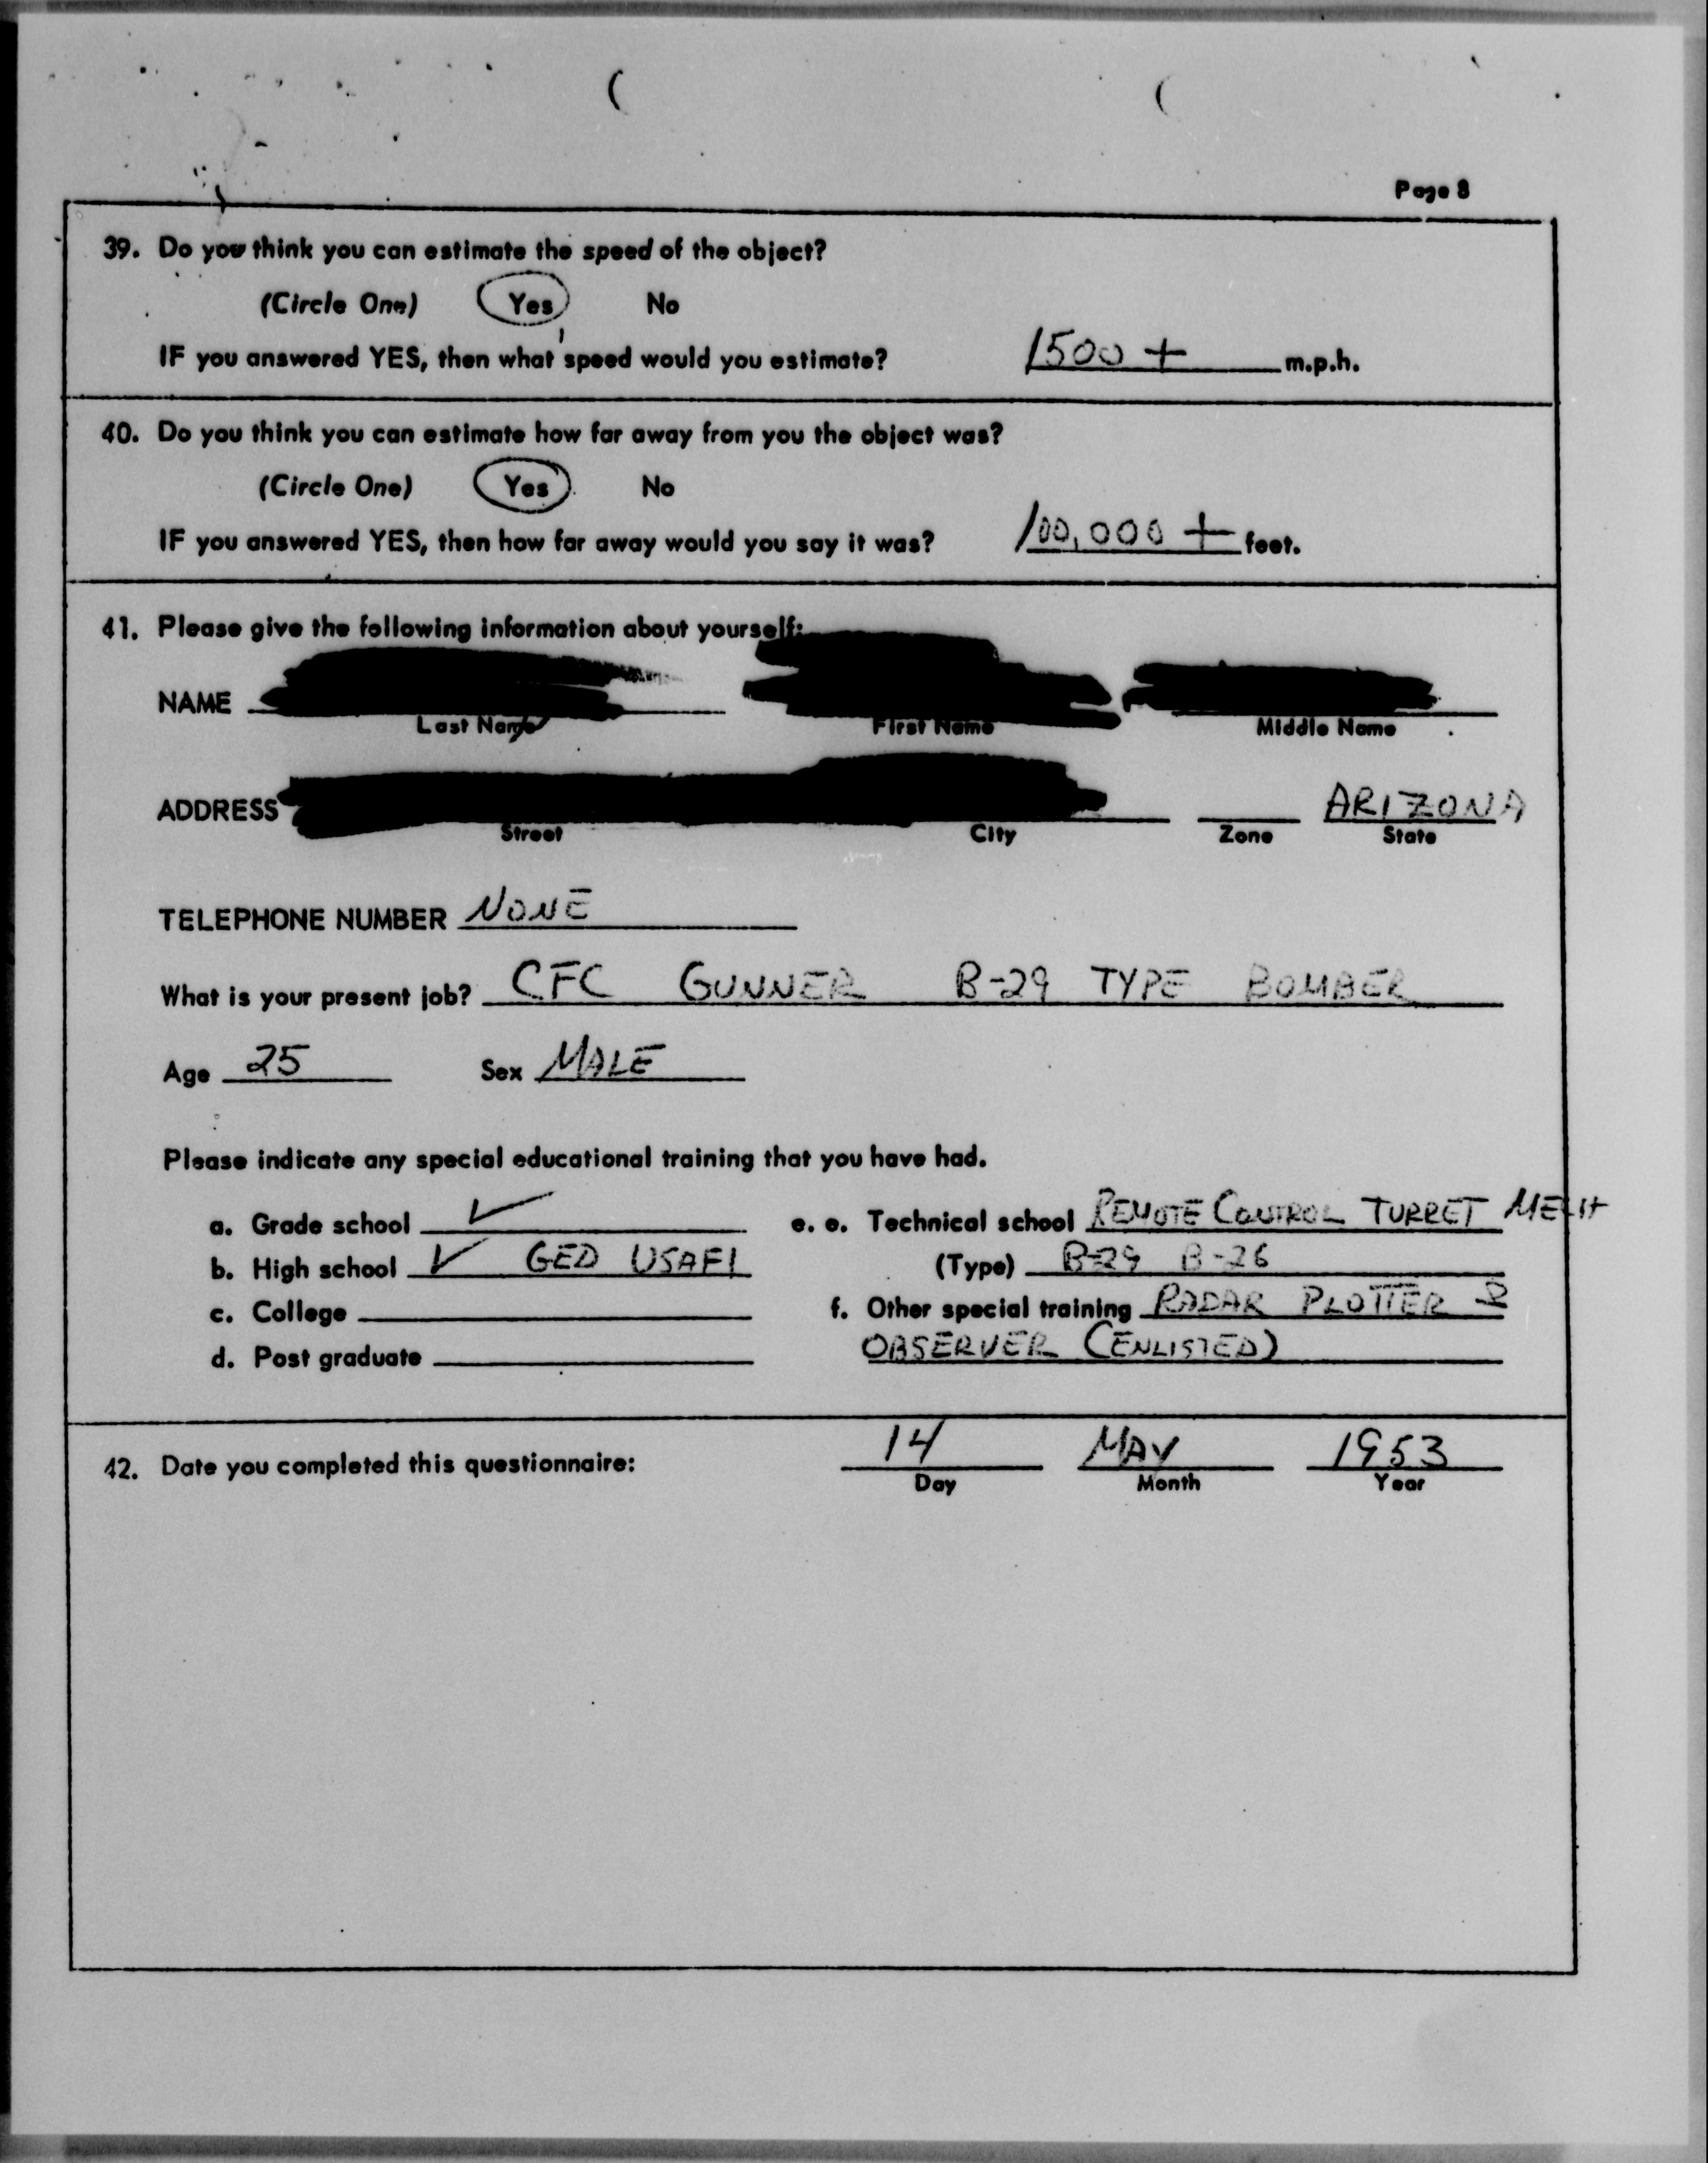 Page 8
39. Do you think you can estimate the speed of the object?
(Circle One) Yes No
IF you answered YES, then what speed would you estimate? 1500 + m.p.h.
40. Do you think you can estimate how far away from you the object was?
(Circle One) Yes No
IF you answered YES, then how far away would you say it was? 100,000 + feet.
41. Please give the following information about yourself:
NAME
Last Name First Name Middle Name
ADDRESS ARIZONA
Street City Zone State
TELEPHONE NUMBER NONE
What is your present job? CFC GUNNER B-29 TYPE BOMBER
Age 25 Sex MALE
Please indicate any special educational training that you have had.
a. Grade school ✓ e. e. Technical school REMOTE CONTROL TURRET MECH
b. High school ✓ GED USAFI (Type) B-29 B-26
c. College f. Other special training RADAR PLOTTER &
d. Post graduate OBSERVER (ENLISTED)
42. Date you completed this questionnaire: 14 MAY 1953
Day Month Year